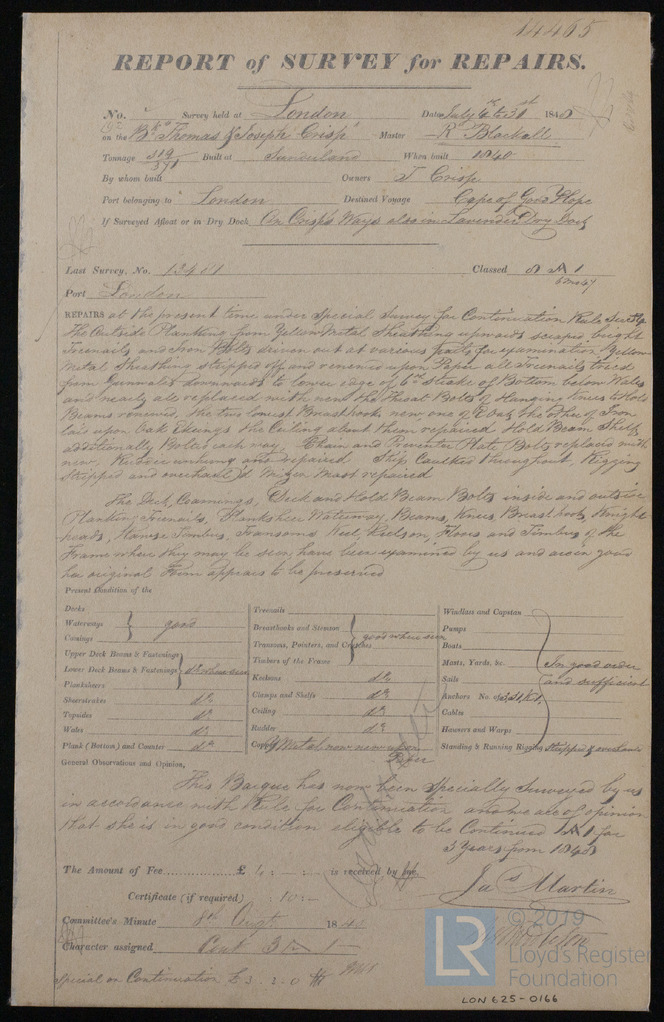 14465
REPORT of SURVEY for REPAIRS.
No. Survey held at London Date July 6th to 31st 1848
on the Bk Thomas & Joseph Crisp Master R Blackall
Tonnage 319 371 Built at Sunderland When built 1840
By whom built Owners T Crisp
Port belonging to London Destined Voyage Cape of Good Hope
If Surveyed Afloat or in Dry Dock On Crisp's Ways also in Lavender Dry Dock
Last Survey, No. 13401 Classed 8 A 1
Port London
REPAIRS at the present time under Special Survey for Continuation Rule
The Outside Planking from Yellow Metal Sheathing upwards scraped bright
Treenails and Iron Bolts driven out at various parts for examination Yellow
Metal Sheathing stripped off and renewed upon Paper all Treenails tried
from Gunwale downwards to lower edge of 6th strake of Bottom below Wales
and nearly all replaced with new the Throat Bolts of Hanging Knees to Hold
Beams renewed, the two lowest Breasthooks new one of Oak the other of Iron
laid upon Oak Ekeings the Ceiling about them repaired Hold Beam Shelfs
additionally Bolted each way Chain and Preventer Plate Bolts replaced with
new. Rudder unhung and repaired Ship Caulked throughout, Rigging
stripped and overhauled Mizen Mast repaired
The Deck, Coamings, Deck and Hold Beam Bolts inside and outside
Planking Treenails, Planksheer Waterway, Beams, Knees, Breasthooks, Knight
heads, Hawse Timbers, Transoms Keel, Keelson, Floors and Timbers of the
Frame where they may be seen, have been examined by us and are in good
her original Form appears to be preserved
Present Condition of the
Decks
Waterways good
Comings
Upper Deck Beams & Fastenings
Lower Deck Beams & Fastenings do where seen
Planksheers
Sheerstrakes do
Topsides do
Wales do
Plank (Bottom) and Counter do
Treenails
Breasthooks and Stemson good where seen
Transoms, Pointers, and Crutches
Timbers of the Frame
Keelsons do
Clamps and Shelfs do
Ceiling do
Rudder do
Copper Y Metal now new upon
Paper
Windlass and Capstan
Pumps
Boats
Masts, Yards, &c. In good order
Sails and sufficient
Anchors No. of
Cables
Hawsers and Warps
Standing & Running Rigging stripped & overhauled
General Observations and Opinion,
This Barque has now been Specially Surveyed by us
in accordance with Rule for Continuation and we are of opinion
that she is in good condition eligible to be Continued A 1 for
3 Years from 1848
The Amount of Fee £ 4 : - : - is received by me,
Certificate (if required) : 10 : -
Jas Martin
Committee's Minute 8th Augt 1848
Character assigned Cont 3
Special on Continuation £ 3 . 3 . 0
LR
© 2019
Lloyd's Register
Foundation
LON 625-0166